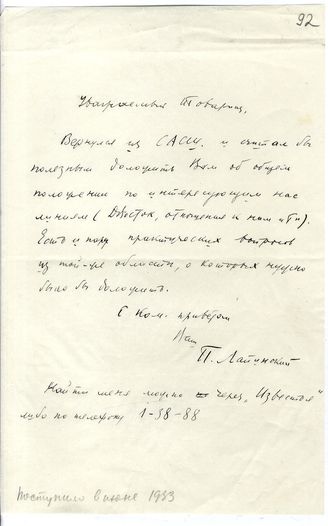 92
Уважаемый Товарищ,
Вернулся из САСШ. и считал бы
полезным доложить Вам об общем
положении по интересующим нас
линиям ( ДВосток, отношения к ним и т.п.).
Есть и пару практических вопросов
из той-же области, о которых нужно
было бы доложить.
С ком. приветом
Ваш
П. Лапинский
Найти меня можно через „Известия"
либо по телефону 1-98-88
Поступило в июне 1933